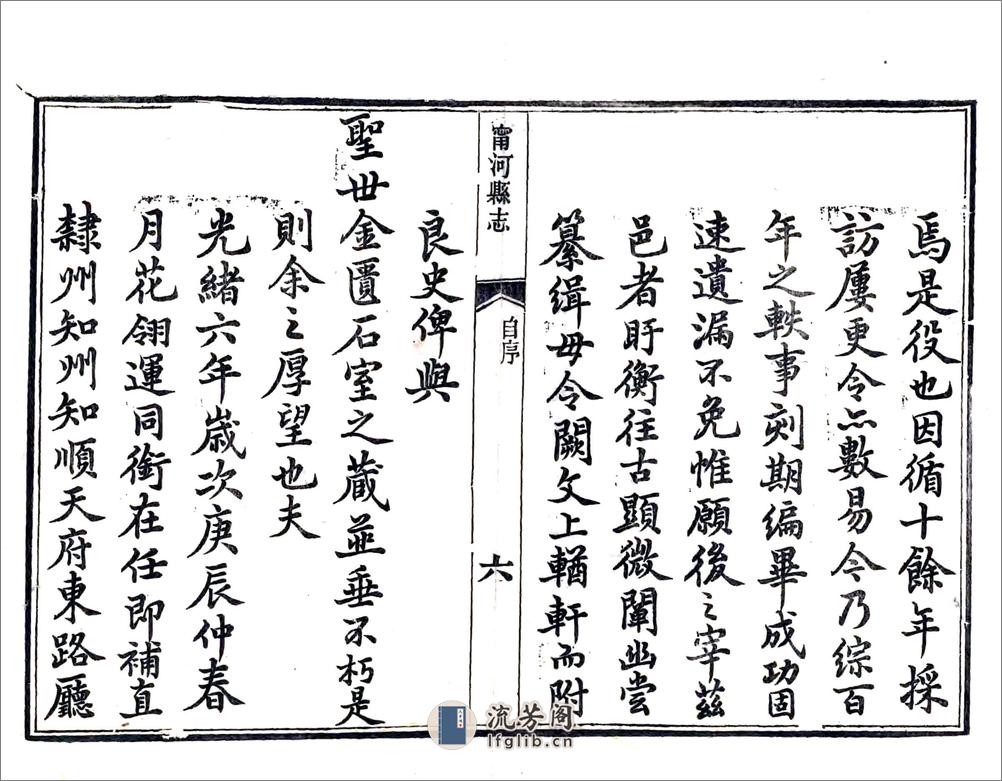 焉是役也因循十餘年採
訪屢更令亦數易今乃綜百
年之軼事刻期編畢成功固
速遺漏不免惟願後之宰茲
邑者盱衡往古顯微闡幽嘗
纂緝毋令闕文上輶軒而附
甯河縣志
自序
六
良史俾與
聖世金匱石室之藏並垂不朽是
則余之厚望也夫
光緒六年歲次庚辰仲春
月花翎運同銜在任即補直
隸州知州知順天府東路廳
流芳阁
lfglib.cn